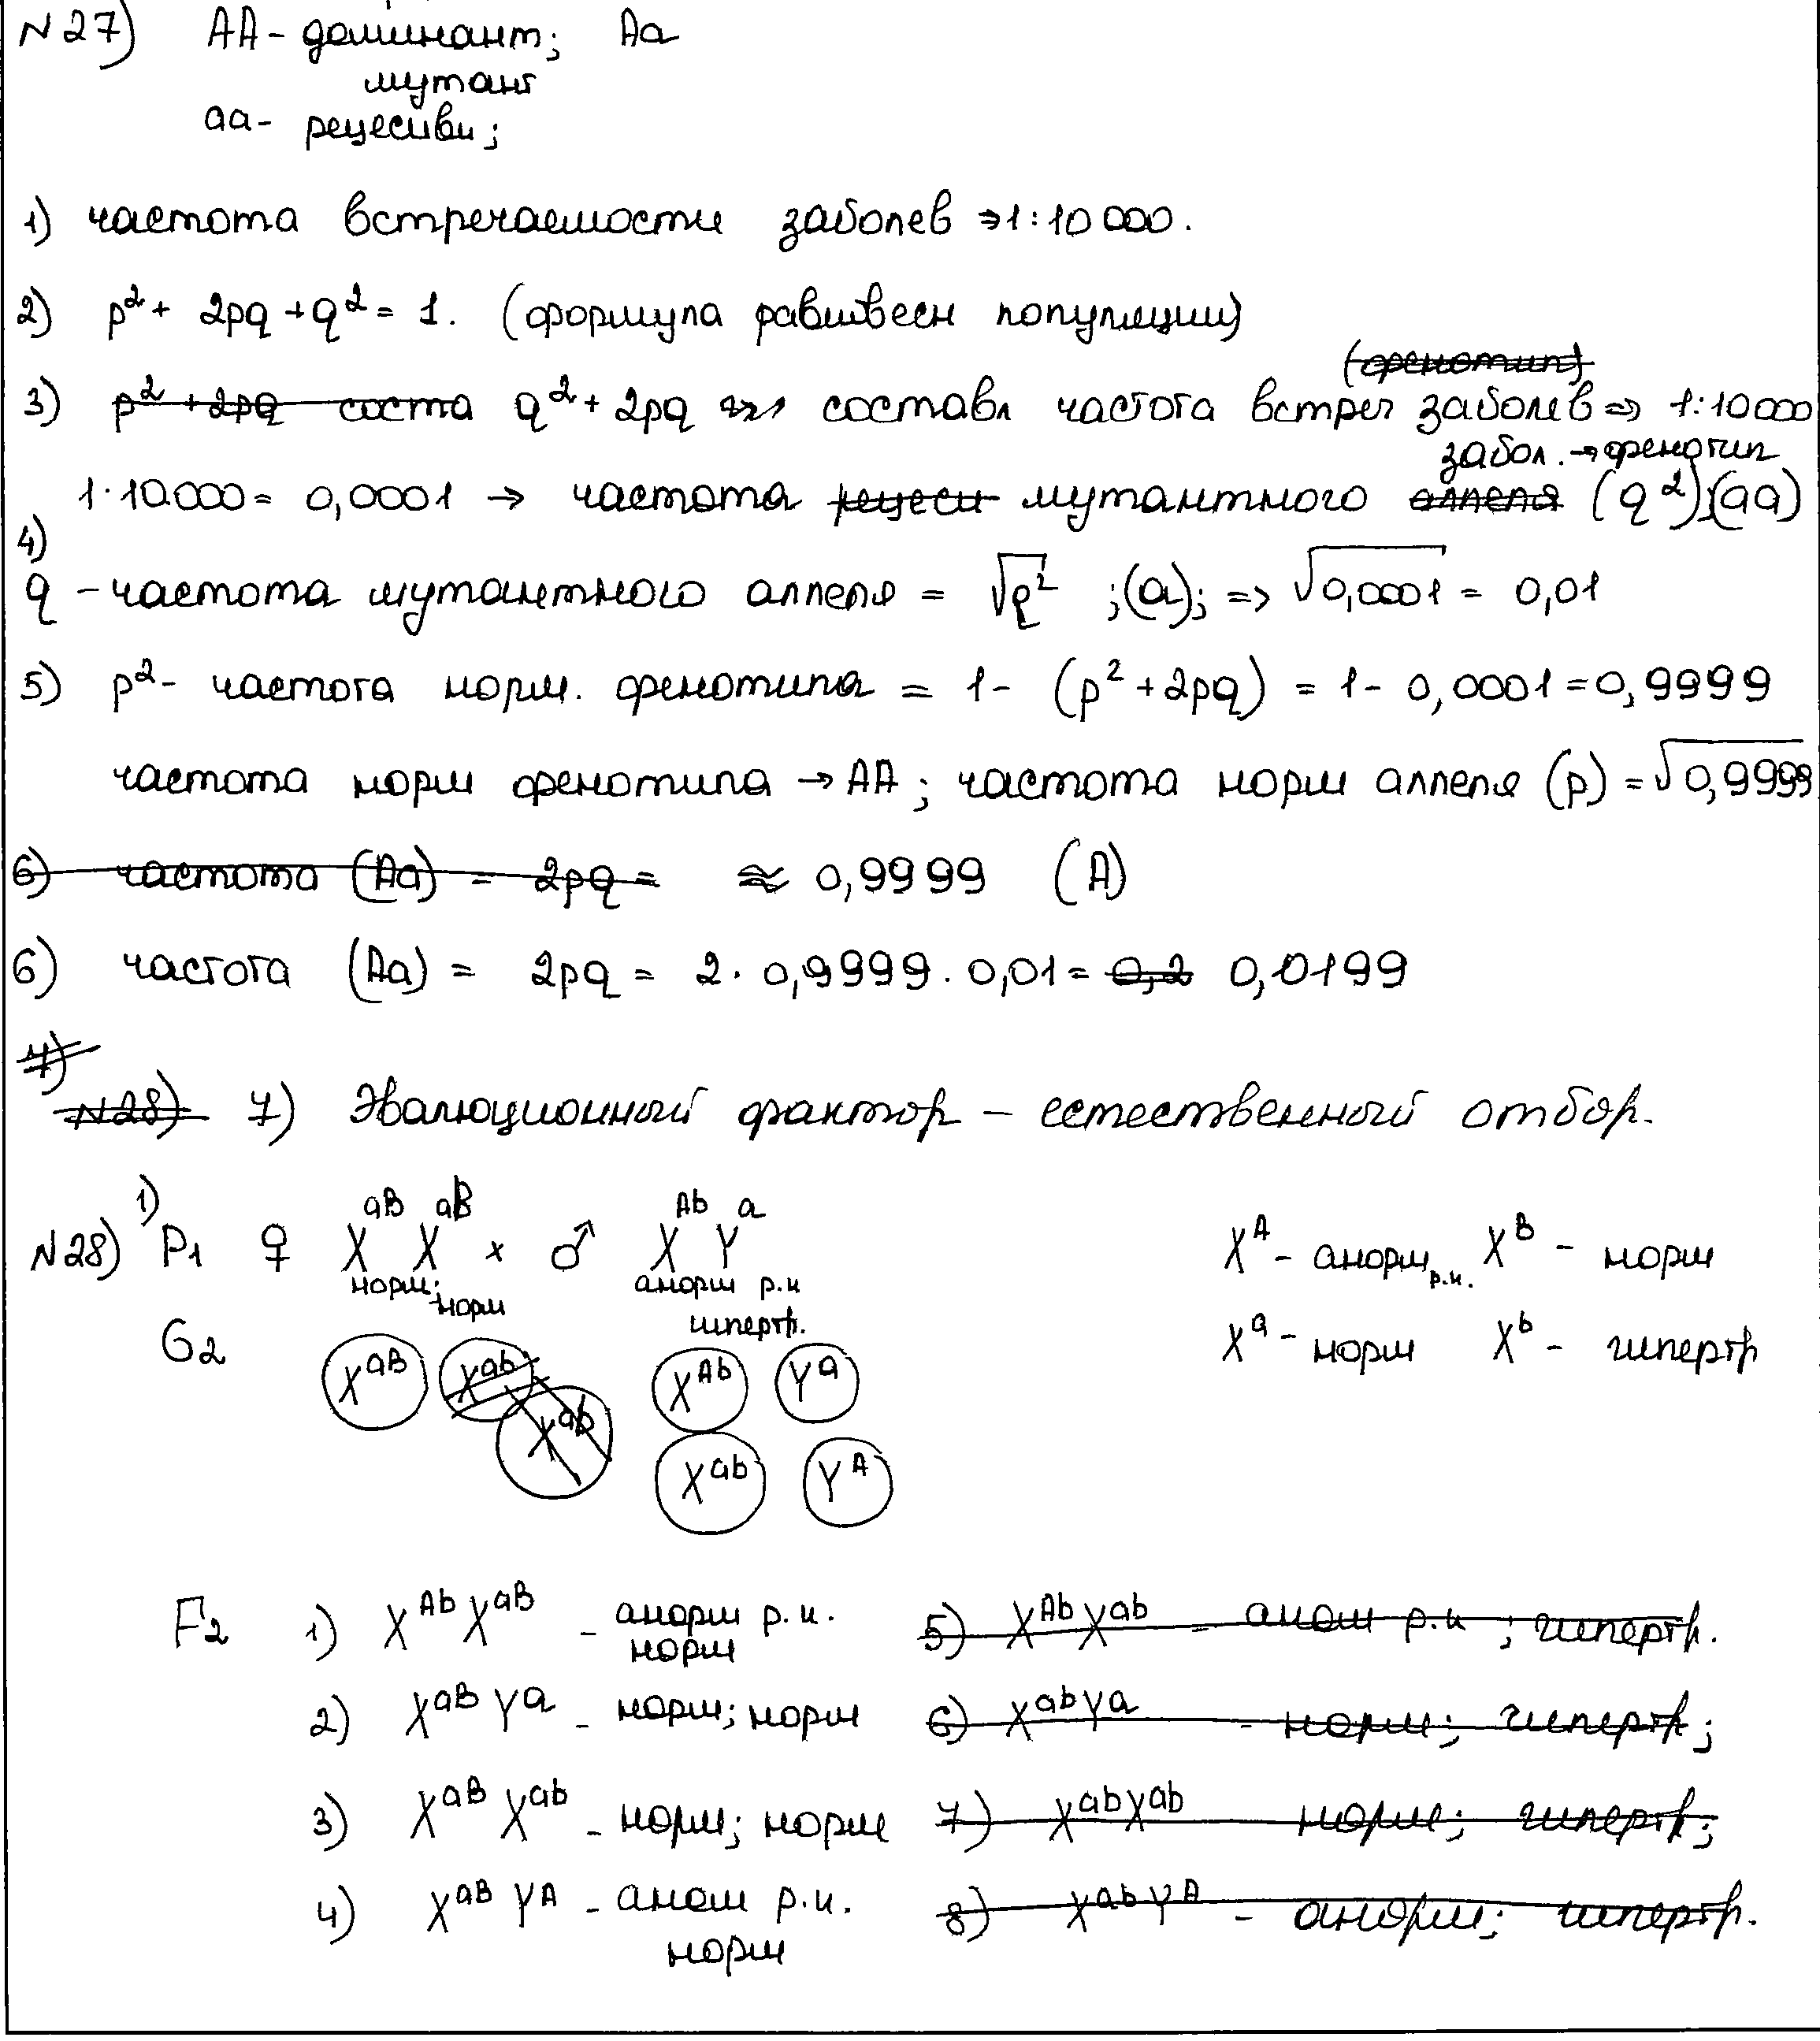 N27) AA - доминант; Aa
мутант
aa - рецесиви;
1) частота встречаемости заболев ⇒ 1:10 000.
2) p² + 2pq + q² = 1. (формула равивесн популяции)
(фенотип)
3) p² + 2pq соста q² + 2pq составл частота встреч заболев ⇒ 1:10000
забол. → фенотип
1·10.000 = 0,0001 → частота рецеси мутантного аллеля (q²);(aa)
4)
q - частота мутантного аллеля = √q² ;(a); => √0,0001 = 0,01
5) p² - частота норм. фенотипа = 1 - (p² + 2pq) = 1 - 0,0001 = 0,9999
частота норм фенотипа → AA ; частота норм аллеля (p) = √0,9999
6) частота (Aa) = 2pq = ≈ 0,9999 (A)
6) частота (Aa) = 2pq = 2 · 0,9999 · 0,01 = 0,2 0,0199
7)
N28) 7) Эвалюционный фактор – естественный отбор.
N28) 1) P₁ ♀ X^aB X^aB × ♂ X^Ab Y^a X^A - анорм р.и. X^B - норм
норм; норм анорм р.и гипертр.
G₂ X^aB X^ab X^Ab Y^a X^a - норм X^b - гипертр
X^ab X^ab Y^A
F₂ 1) X^Ab X^aB - анорм р.и. 5) X^Ab X^ab - аном р.и ; гипертр.
норм
2) X^aB Y^a - норм; норм 6) X^ab Y^a - норм; гипертр;
3) X^aB X^ab - норм; норм 7) X^ab X^ab норм; гипертр;
4) X^aB Y^A - аном р.и. 8) X^ab Y^A - анорм; гипертр.
норм